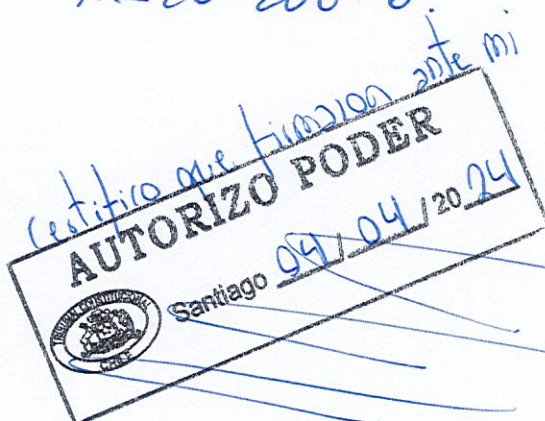 Certifico que firmaron ante mi
AUTORIZO PODER
Santiago 04 / 04 / 20 24
TRIBUNAL CONSTITUCIONAL
CHILE